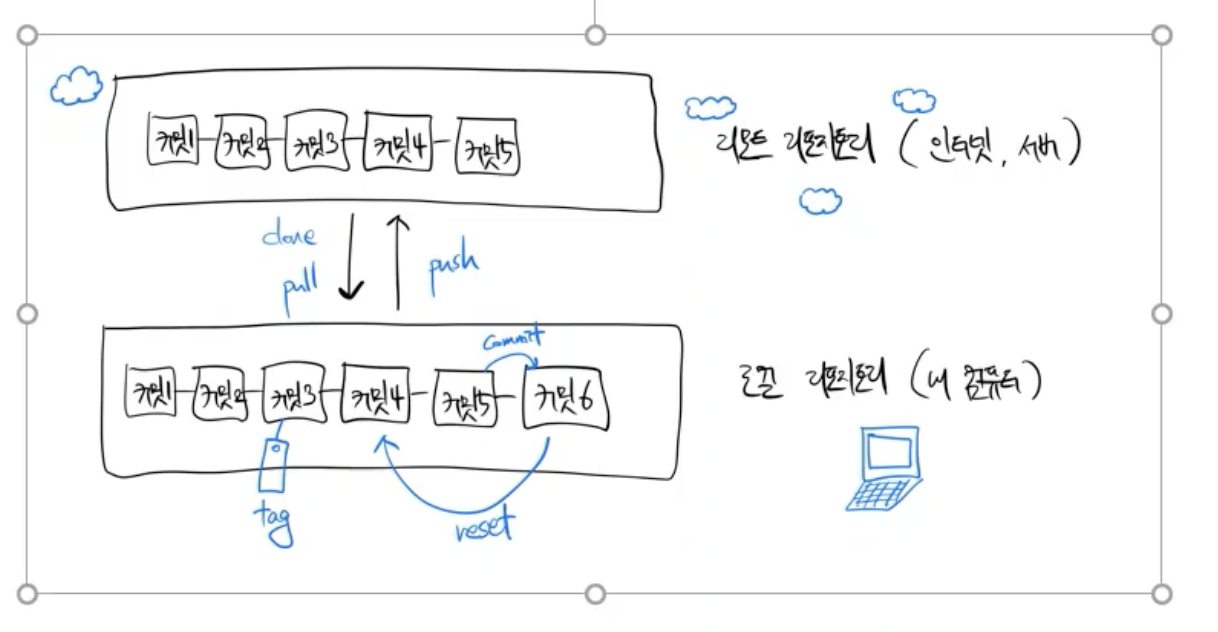 커밋1 커밋2 커밋3 커밋4 커밋5
리모트 리포지토리 (인터넷, 서버)
clone
pull
push
commit
커밋1 커밋2 커밋3 커밋4 커밋5 커밋6
로컬 리포지토리 (내 컴퓨터)
tag
reset